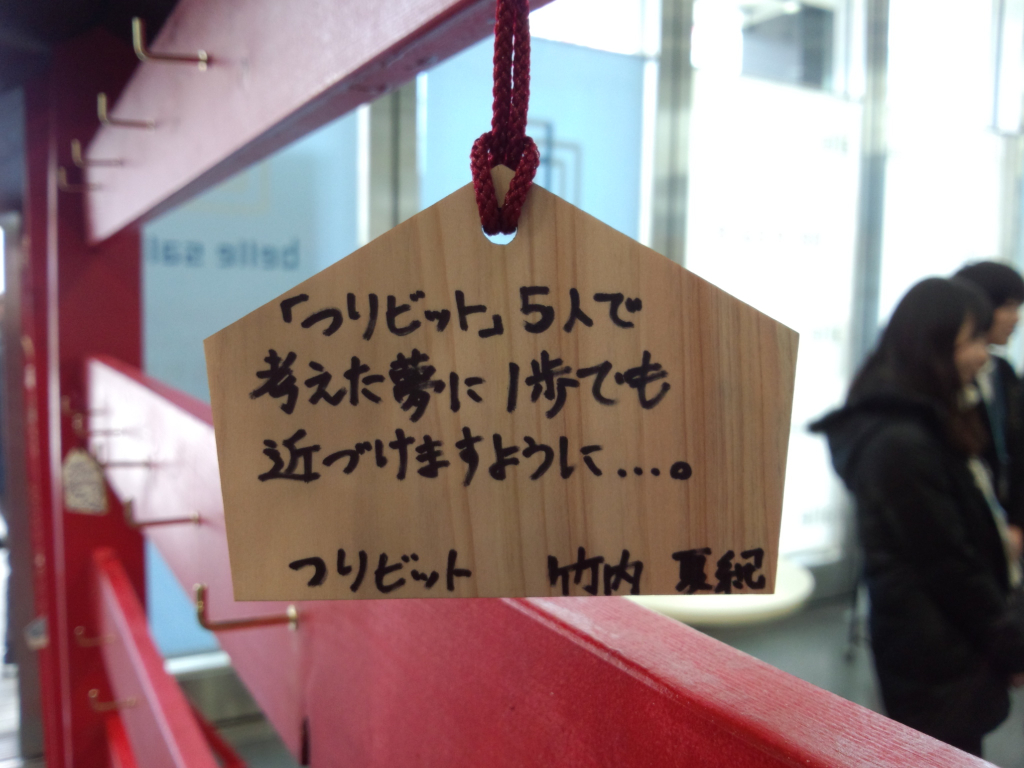 「つりビット」5人で
考えた夢に1歩でも
近づけますように…。
つりビット 竹内 夏紀
belle sal